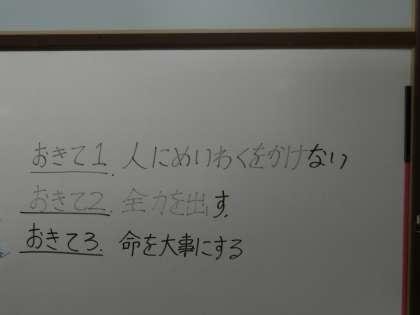 おきて1. 人にめいわくをかけない
おきて2. 全力を出す.
おきて3. 命を大事にする